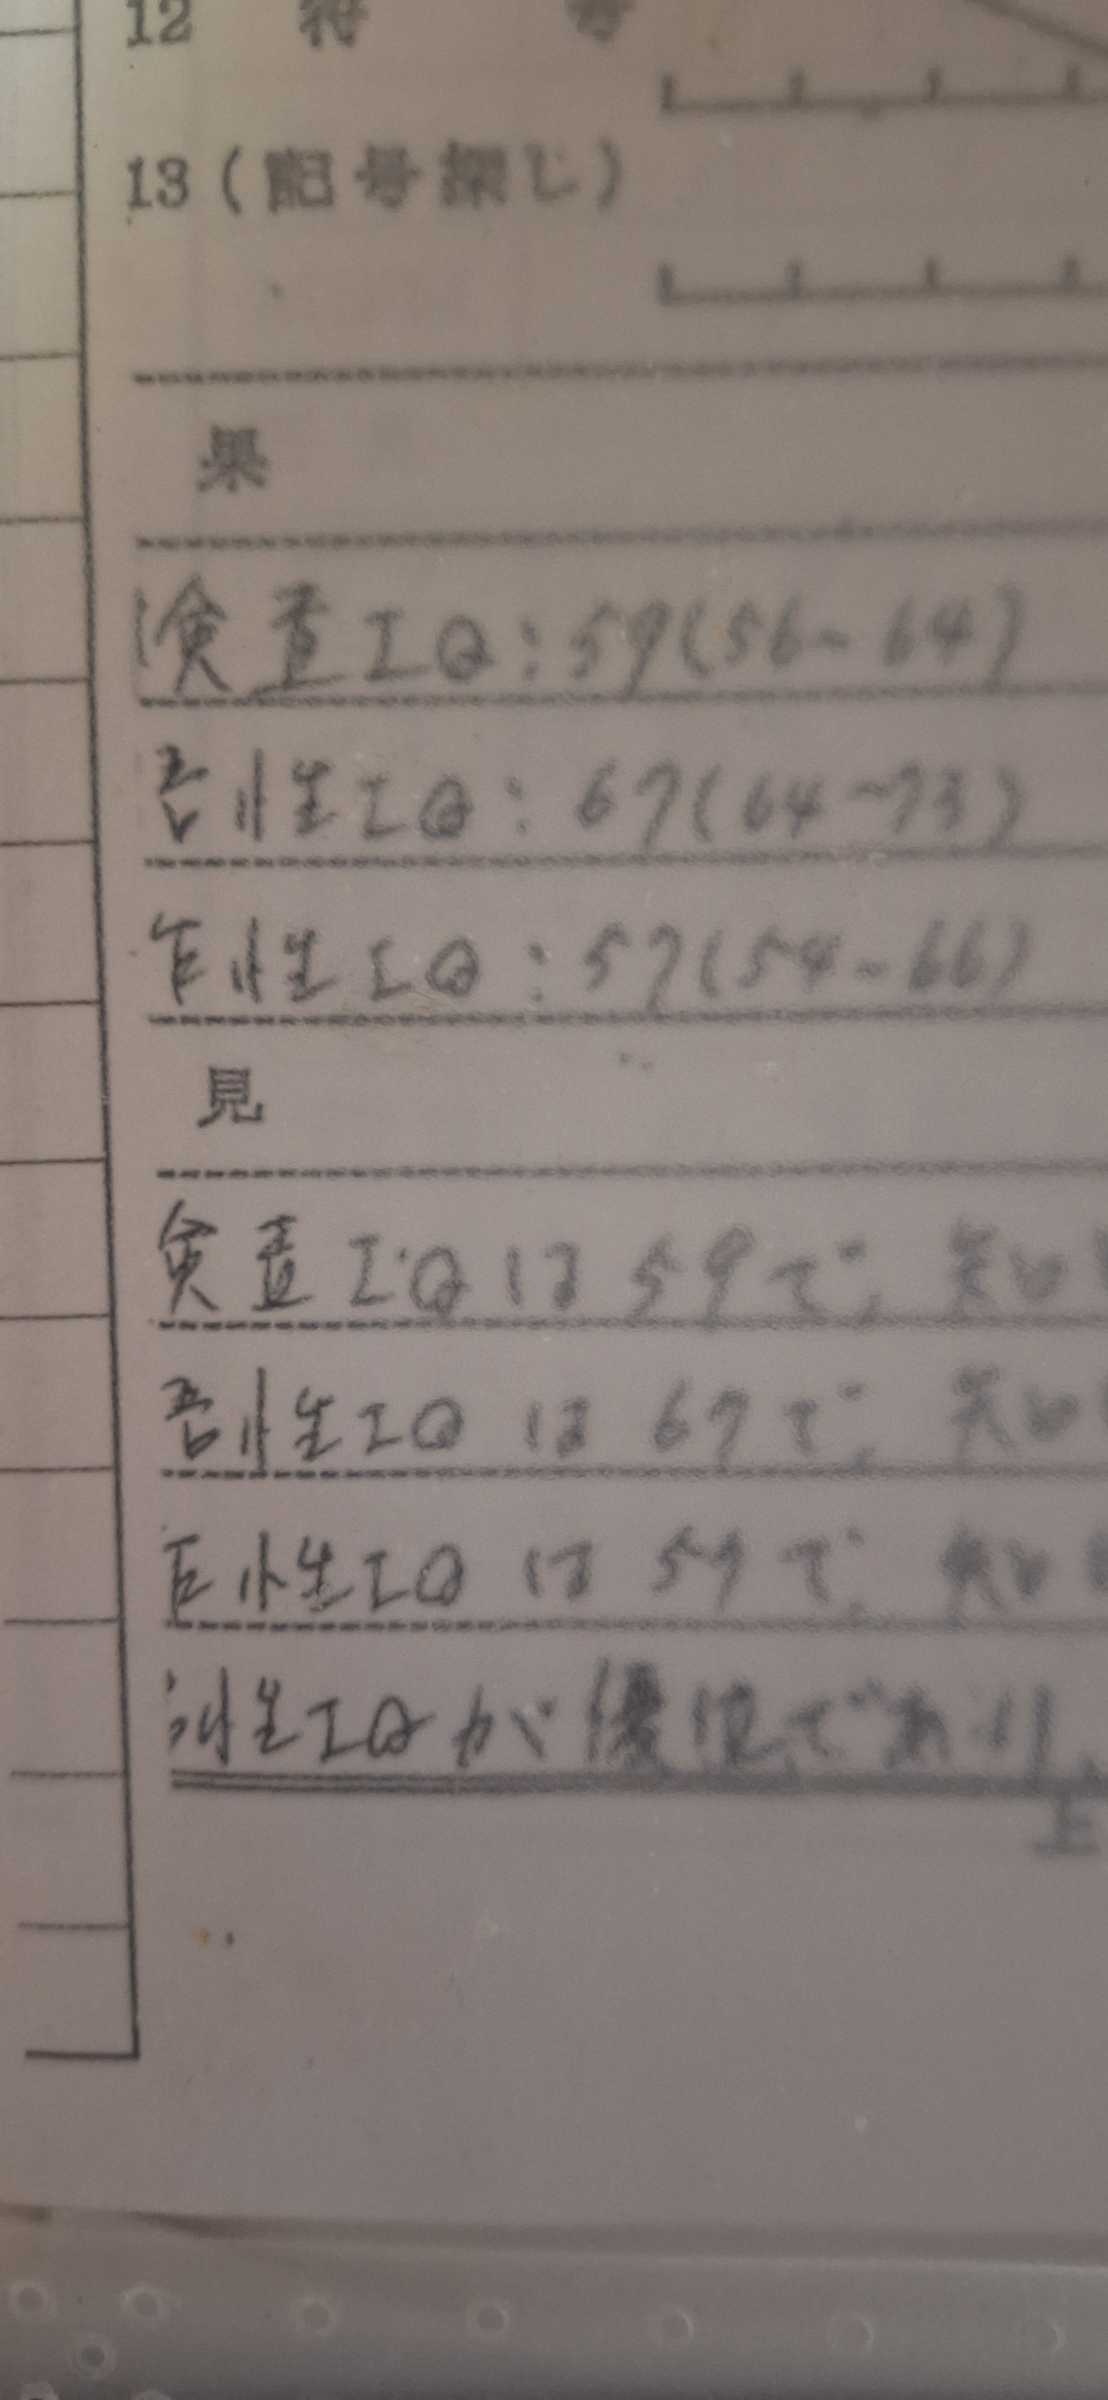 12 符 号
13(記号探し)
果
検査IQ:59(56~64)
言性IQ:67(64~73)
性IQ:57(54~66)
見
検査IQは59で、知
言性IQは67で、知
性IQは57で、知
性IQが優位であり、
上